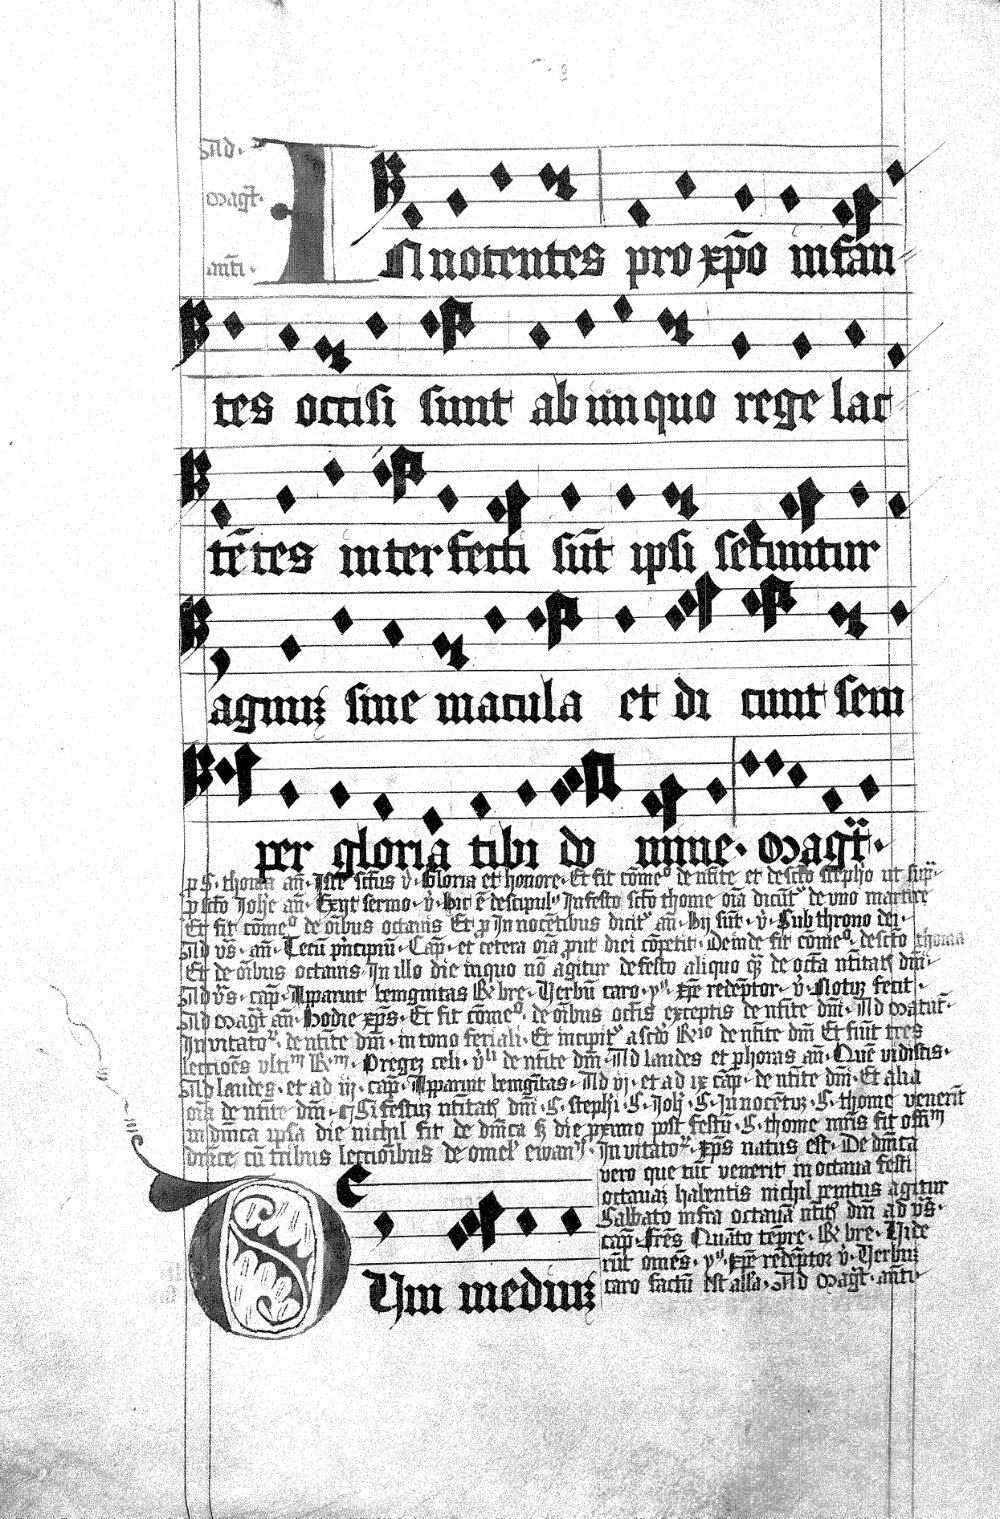 Ad·
magt̄·
anti·
INnocentes pro xp̄o infan
tes occisi sunt ab iniquo rege lac
tētes interfecti sūt ipsi secuntur
agnuꝫ sine macula et di cunt sem
per gloria tibi do mine· Magt̄·
p S· thoma añ· Iste sc̄tus v̇· Gloria et honore· Et fit cōmeᵒ de nt̄ite et de scto stepho ut sup̄·
p scto Johe añ· Exijt sermo· v̇· hic ē descipulꝰ In festo scto thome oīa dicūtʳ de vno martire
Et fit cōmeᵒ de oībus octauis Et p In nocētibus dicitʳ añ· hij sūt· v̇· Sub throno dei·
Ad vs̄· añ· Tecū pʳncipiū· Cap̄· et cetera oīa prout diei cōpetit· Deinde fit cōmeᵒ· de scto thoma
Et de oībus octauis In illo die in quo nō agitur de festo aliquo qꝫ de octa nt̄itatꝭ dn̄i·
Ad vs̄· cap̄· Apparuit benignitas ℟ bre· Verbū caro· yꝰ· xp̄e redēptor· v̇· Notuꝫ fecit·
Ad magt̄ añ· Hodie xp̄s· Et fit cōmeᵒ· de oībus octīs exceptis de nt̄ite dn̄i· Ad matut̄·
Inuitatoᵘ· de nt̄ite dn̄i· in tono feriali· Et incipitʳ a scdo ℟ⁱᵒ de nt̄ite dn̄i Et fiūt tres
lectioēs vltiᵐ ℟ᵐ· Pregeꝫ celi· v̇ˡⁱ de nt̄ite dn̄i· Ad laudes et p horas añ· Quē vidistis·
Ad laudes· et ad iij· cap̄· Apparuit benignitas· Ad vj· et ad ix cap̄· de nt̄ite dn̄i· Et alia
oīa de nt̄ite dn̄i· Si festuꝫ nt̄itatꝭ dn̄i· S· stephi· S· Joh· S· Innocētuꝫ· S· thome venerit
in dn̄ica ipsa die nichil fit de dn̄ica sꝫ die pximo post festū· S· thome mrīs fit offīᵐ
dn̄ice cū tribus lectioībus de omelʳ ewanˢ· Inuitatoᵘ· xp̄s natus est· De dn̄ica
vero que tūc venerit in octaua festi
octauaꝫ habentis nichil penitus agitur
Sabbato infra octauā nt̄itꝭ dn̄i ad vs̄·
cap̄· Fres̄ Quāto tēpre· ℟ bre· Vide
rūt omēs· yꝰ· xp̄e redēptor v̇· Verbuꝫ
caro factū est alla· Ad magt̄· anti·
DUm mediuꝫ